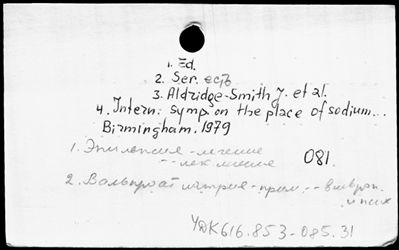 1. Ed.
2. Ser. есть
3. Aldridge-Smith J. et al.
4. Intern. symp. on the place of sodium...
Birmingham. 1979
1. Эпилепсия - лечение
-- лек
081.
2. Вальпроат натрия - прим. --
и псих
УДК616.853-085.31